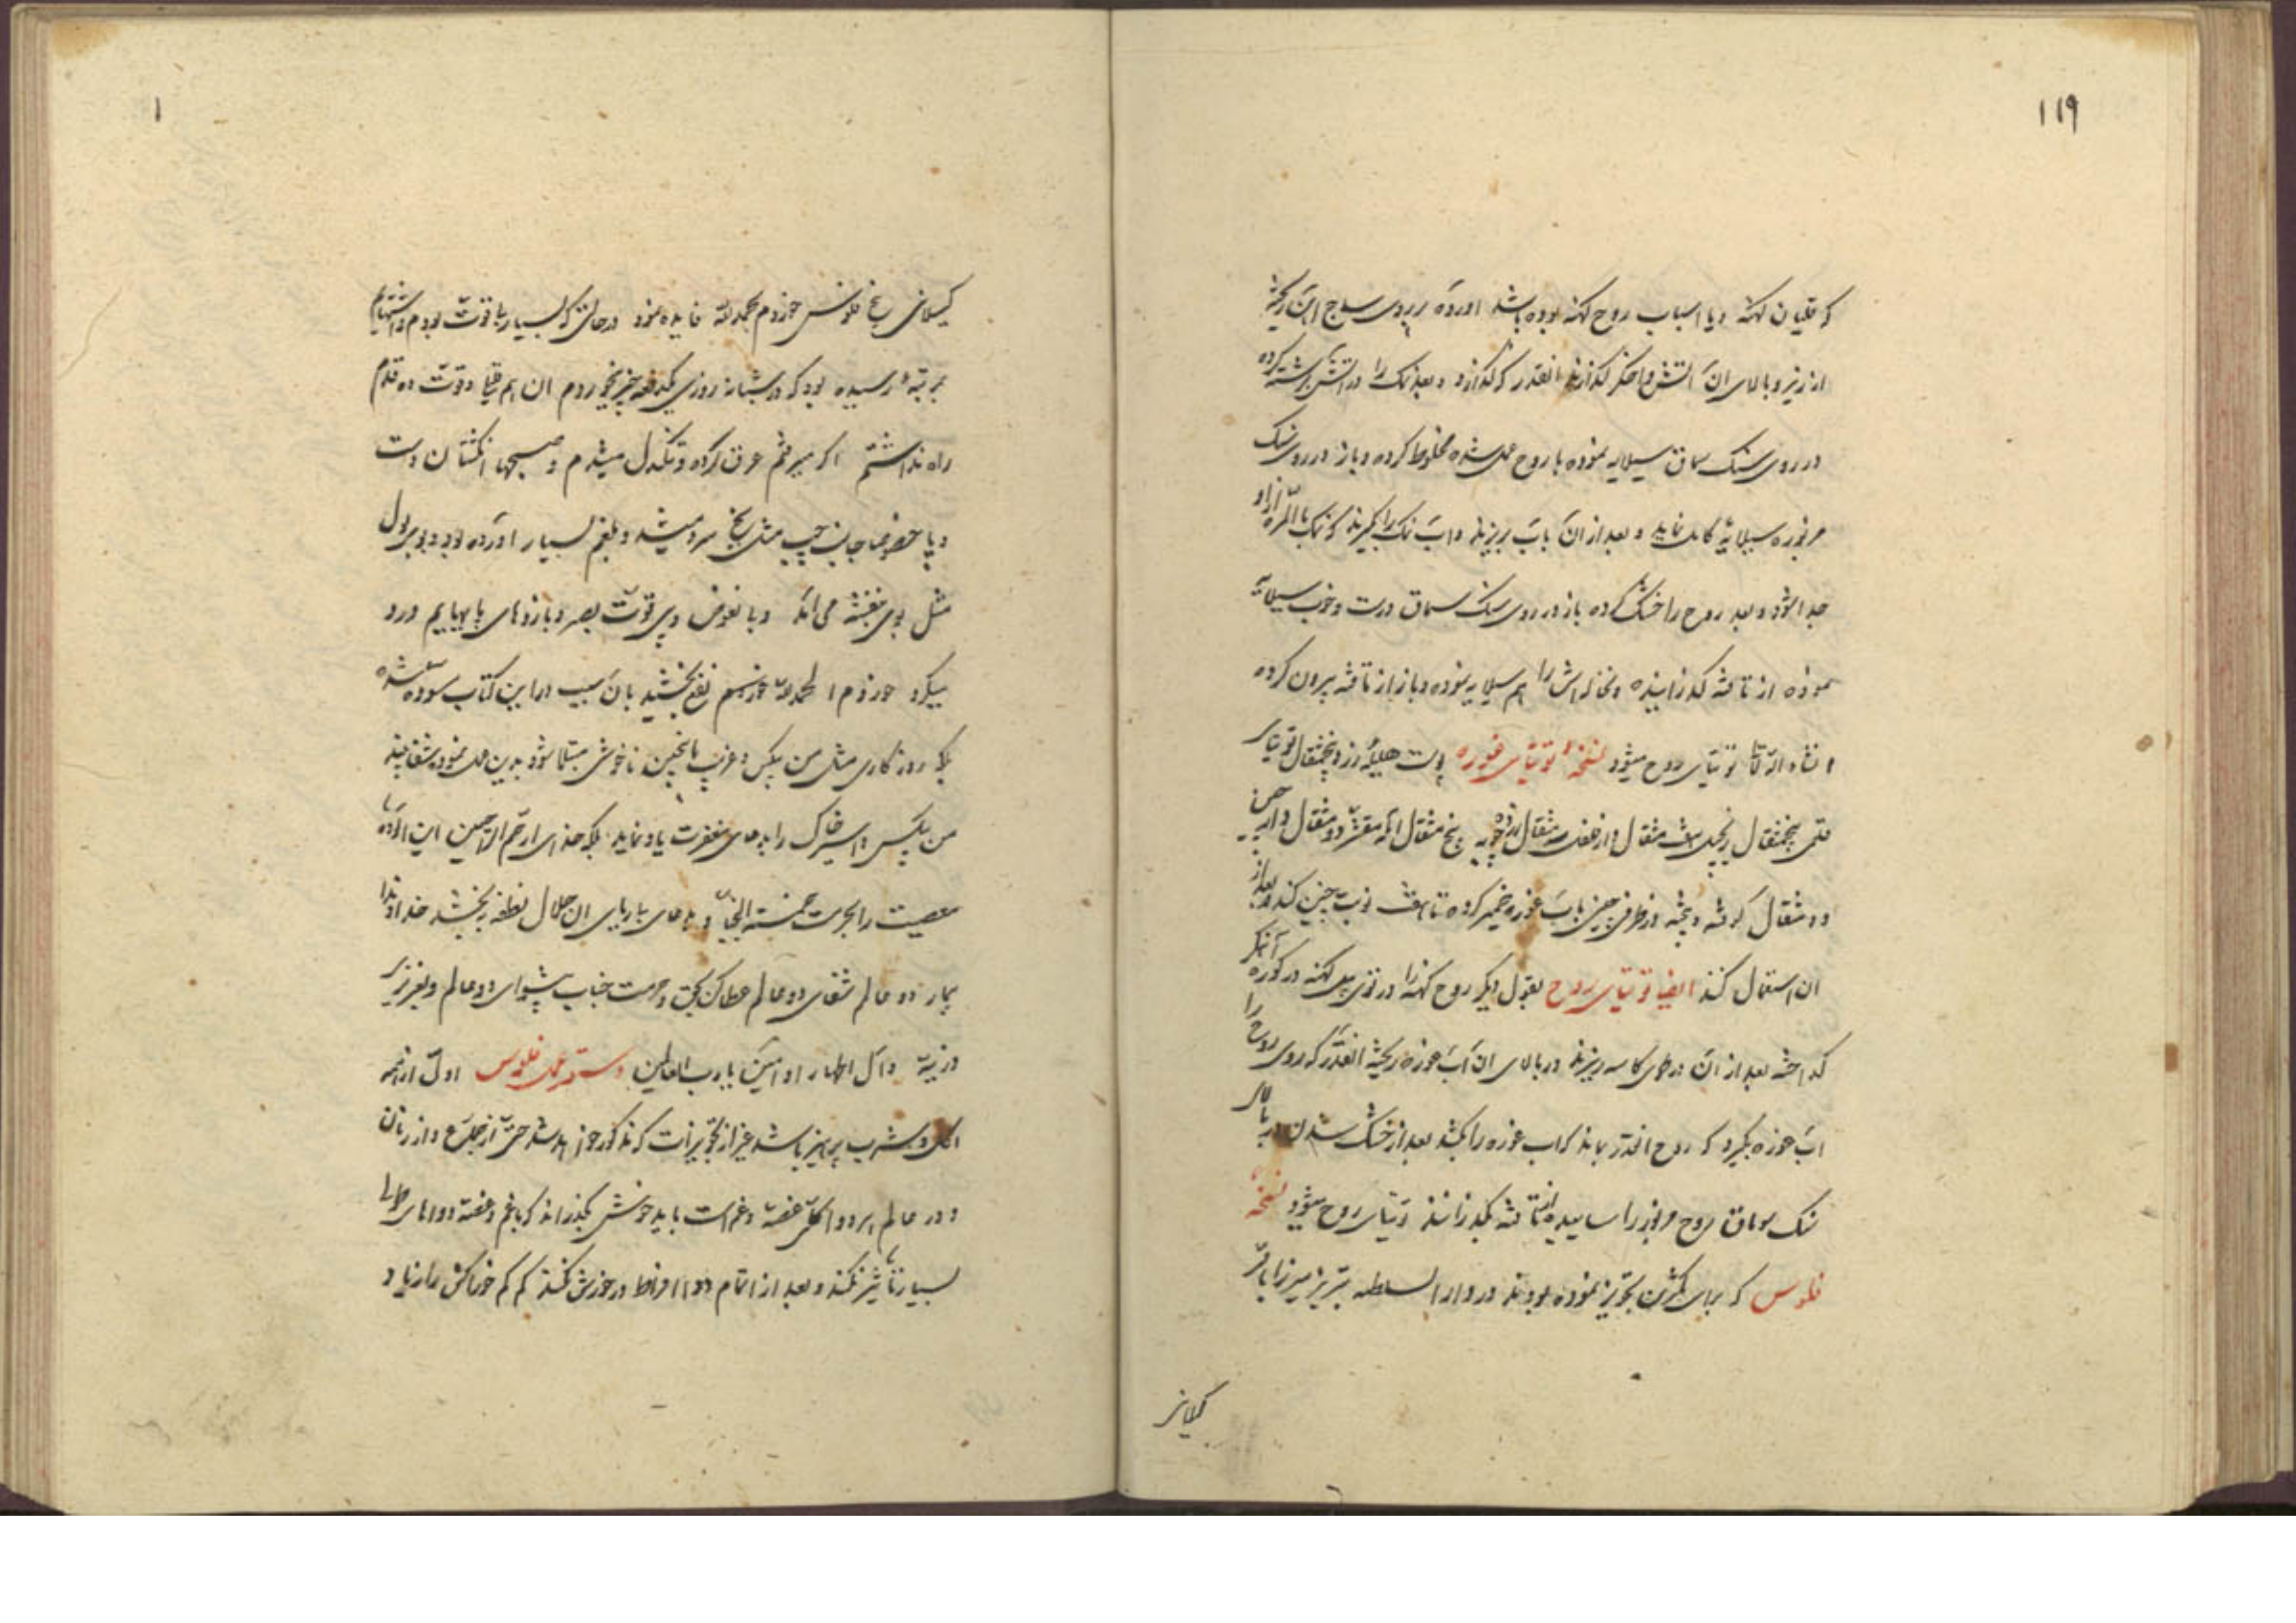 ۱۱۹
که قلیان کهنه و یا اسباب روح کهنه بوده باشد اورده بر روی ساج آهن ریخته
از زیر و بالای ان آتش و اخکر بگذارند انقدر که بگدازد و بعد نمک را در آتش برشته کرده
در روی سنک سماق سیلایه نموده با روح حل شده مخلوط کرده و باز در روی سنک
مزبوره سیلایه کامل نماید و بعد از ان بآب بریزند و آب نمک را بگیرند که نمک بالمره از او
جدا شود و بعد روح را خشک کرده باز در روی سنک سماق درست و خوب سیلایه
نموده از تافته گذرانیده و نخاله اش را هم سیلایه نموده و باز از تافته بیرون کرده
انشاء الله تعالی توتیای روح میشود نسخهٔ توتیای غوره پوست هلیله زرد پنجمثقال توتیای
قلمی پنجمثقال زنجبیل هشت مثقال دارفلفل سه مثقال زرده چوبه پنج مثقال آمله مقشر دو مثقال دارچین
دو مثقال کوفته و بیخته در ظرف چینی بآب غوره خمیر کرده تا هفت نوبت چنین کند و بعد از
ان استعمال کنند ایضا توتیای روح بقول دیکر روح کهنه را در توی بیل کهنه در کوره آهنگر
گداخته بعد از آن در طاس کاسه ریزند در بالای ان آب غوره ریخته انقدر که روی روح را
آب غوره بگیرد که روح انقدر بماند که اب غوره را بکشد بعد از خشک شدن در بالای
سنک سماق روح مزبور را ساییده از تافته بگذرانند توتیای روح میشود نسخهٔ
فلوس که برای کمترین تجویز نموده بودند در دار السلطنه تبریز میرزا باقر
کیلانی
۱
کیلانی بیخ فلوس خوردم بحمد لله فایده نمود در حالتی که بسیار بی قوت بودم و اشتهایم
بمرتبهٔ رسیده بود که در شبانه روزی یکدفعه چیز نمیخوردم ان هم قلیلا و قوت ده قدم
راه نداشتم اکر میرفتم عرق کرده و تنکدل میشدم و صبحها انکشتان دست
و پا خصوصا جانب چپ مثل یخ سرد میشد و بلغم بسیار اورده بود و بوی بول
مثل بوی بنفشه می آمد و با نعوض و بی قوت بصر و بازوهای پاهایم درد
میکرد خوردم الحمد لله نفع بخشید بآن سبب در این کتاب مسوده شد
بلکه روزکاری مثل من بیکس و غریب باینچنین ناخوشی مبتلا شود بدین عمل نموده شفا یابند
من بیکس و اسیر خاک را بدعای مغفرت یاد نماید بلکه خدای ارحم الراحمین این آلوده
معصیت را بحرمت خمسة النجبا و بدعای بیریای ان حلال نطفه ببخشد خداوندا
بیمار دو عالم شفای دو عالم عطا کن بحق و حرمت جناب پیشوای دو عالم و بعزیز
ذریه و آل اطهار او آمین یا رب العالمین دستور عمل فلوس اول از همه
اکل و شرب پرهیز باشد غیر از تجویزات که مذکور خواهد شد حتی از جماع و از زنان
و در عالم هر دو اکل غصه و غم است باید خوش بگذراند که با غم و غصه دواهای
بسیار تاثیر نکند و بعد از اتمام دوا افراط در خورش نکند کم کم خوراکش را زیاد